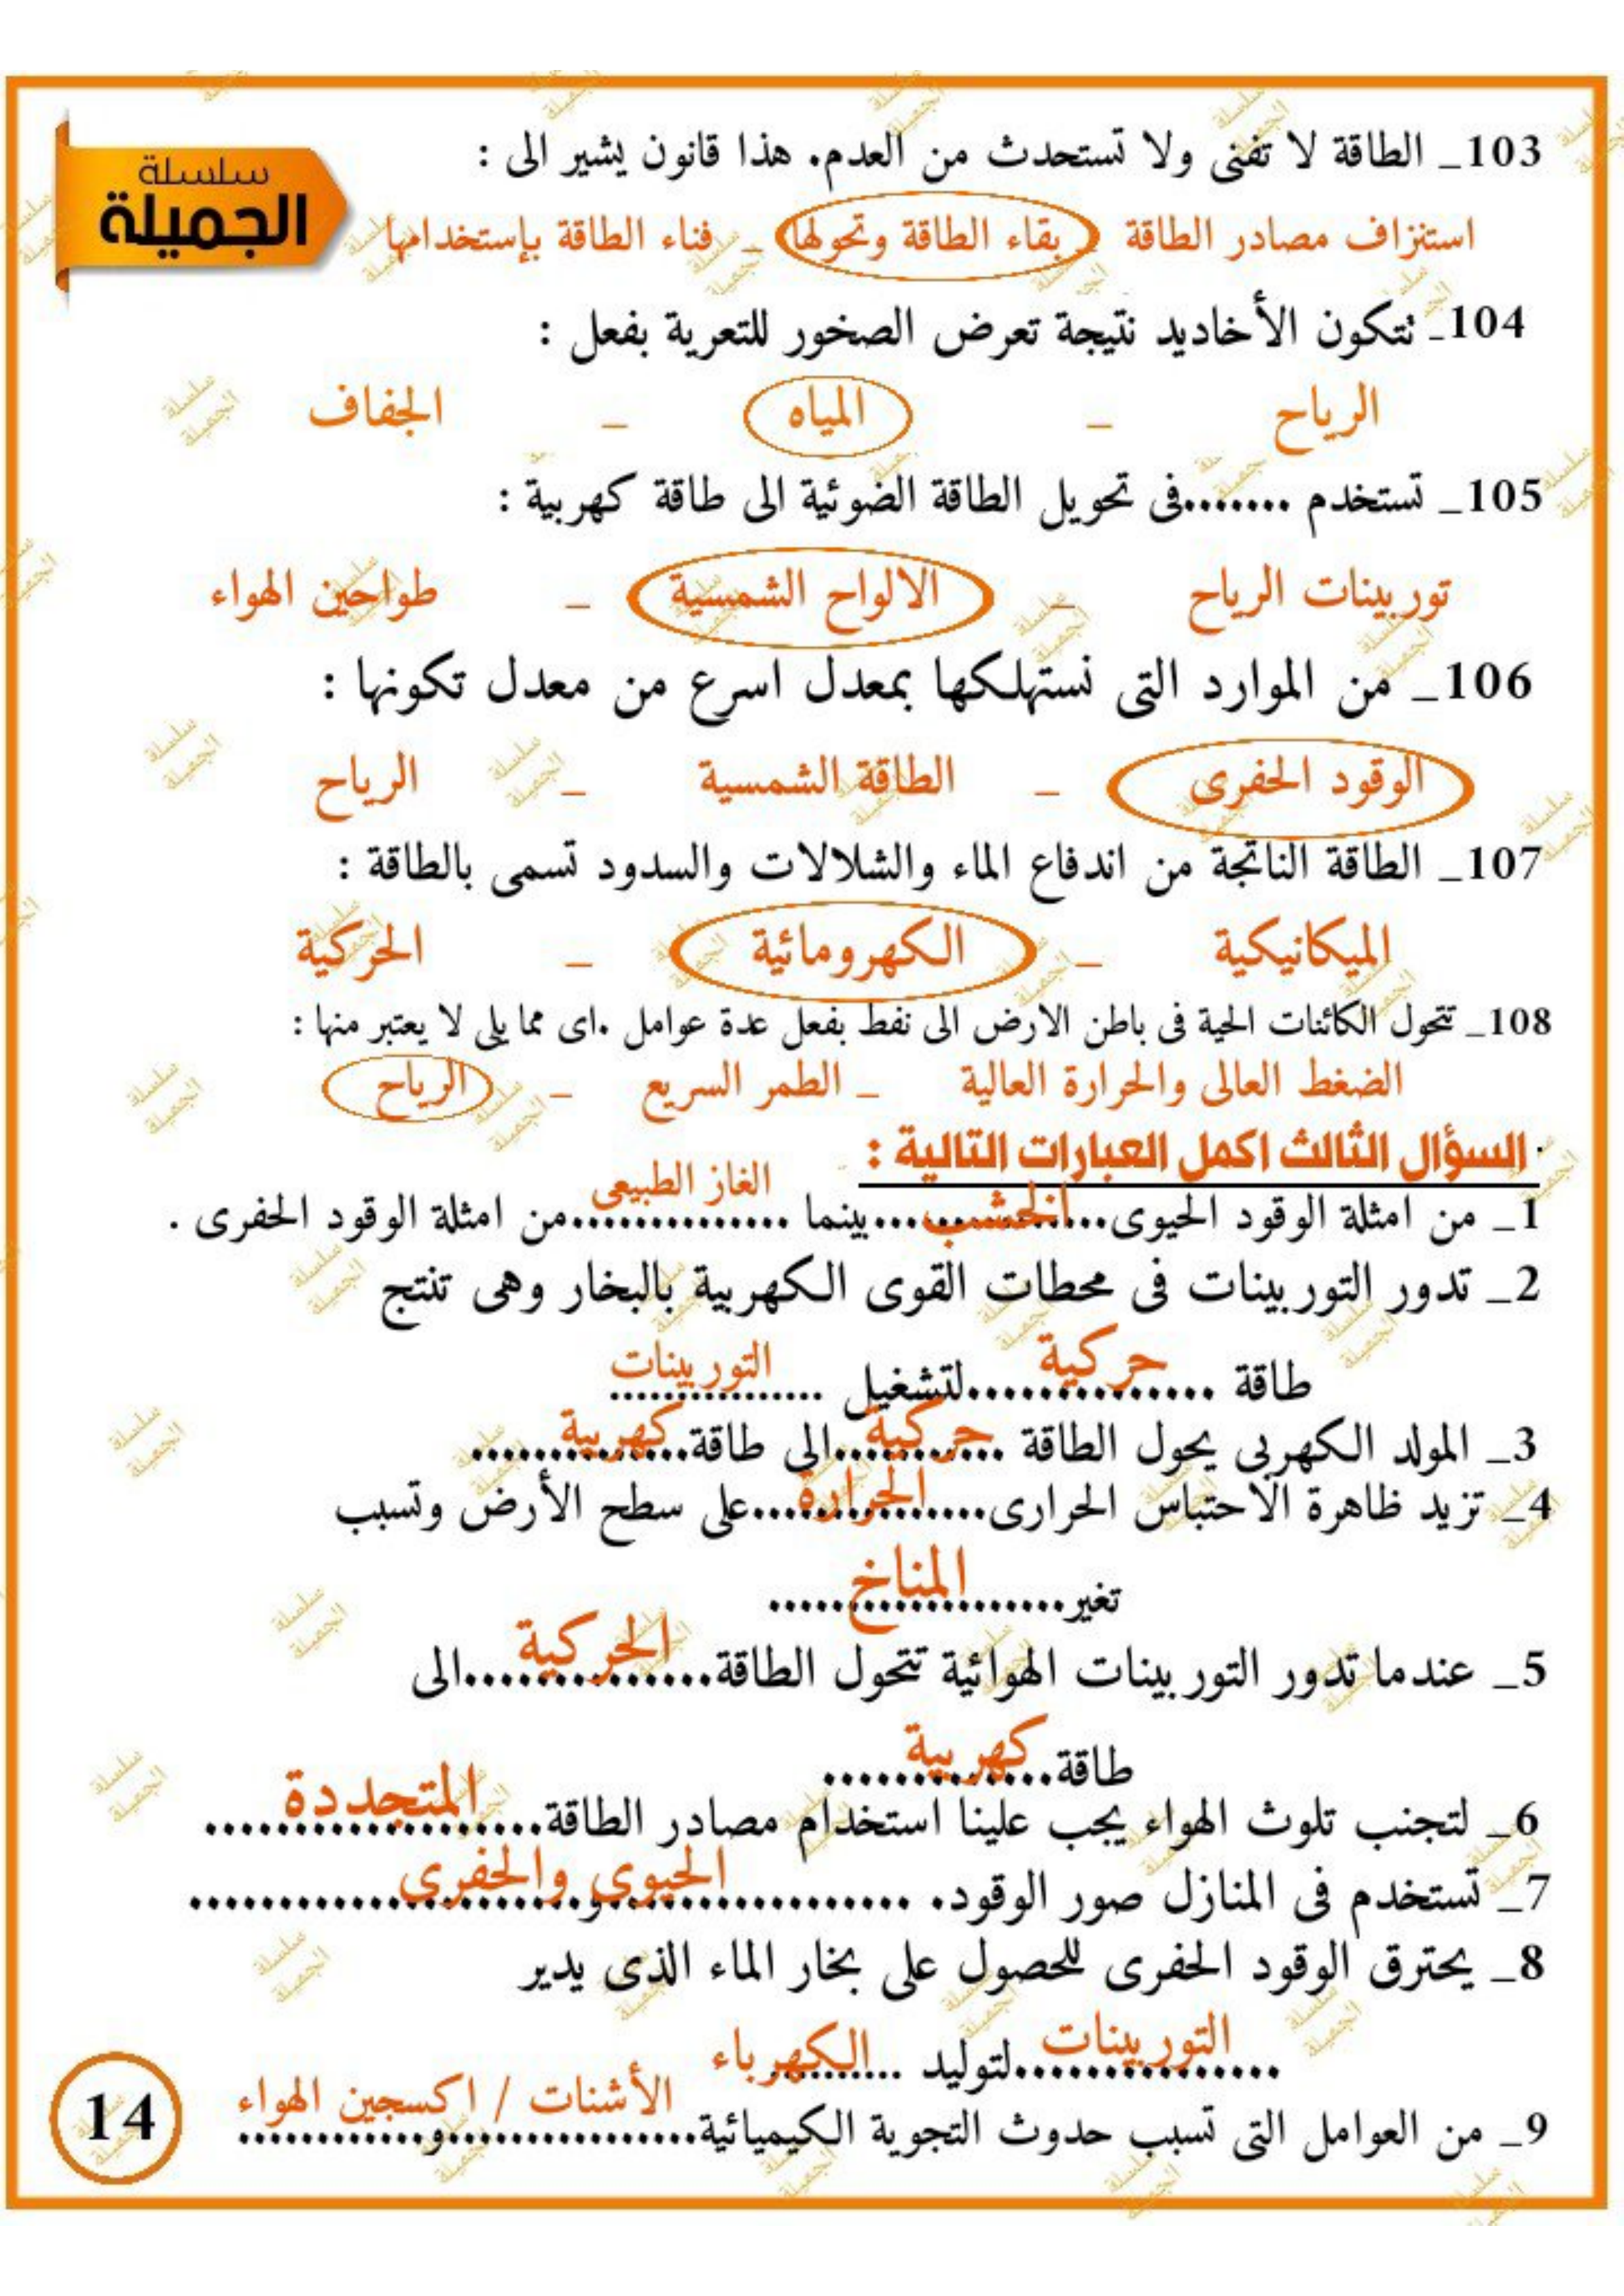 سلسلة
الجميلة
103_ الطاقة لا تفنى ولا تستحدث من العدم. هذا قانون يشير الى :
استنزاف مصادر الطاقة _ بقاء الطاقة وتحولها _ فناء الطاقة بإستخدامها
104_ تتكون الأخاديد نتيجة تعرض الصخور للتعرية بفعل :
الرياح _ المياه _ الجفاف
105_ تستخدم ........فى تحويل الطاقة الضوئية الى طاقة كهربية :
توربينات الرياح _ الالواح الشمسية _ طواحين الهواء
106_ من الموارد التى نستهلكها بمعدل اسرع من معدل تكونها :
الوقود الحفرى _ الطاقة الشمسية _ الرياح
107_ الطاقة الناتجة من اندفاع الماء والشلالات والسدود تسمى بالطاقة :
الميكانيكية _ الكهرومائية _ الحركية
108_ تتحول الكائنات الحية فى باطن الارض الى نفط بفعل عدة عوامل .اى مما يلى لا يعتبر منها :
الضغط العالى والحرارة العالية _ الطمر السريع _ الرياح
السؤال الثالث اكمل العبارات التالية :
1_ من امثلة الوقود الحيوى...الخشب...بينما ...الغاز الطبيعى...من امثلة الوقود الحفرى .
2_ تدور التوربينات فى محطات القوى الكهربية بالبخار وهى تنتج
طاقة ...حركية...لتشغيل ...التوربينات...
3_ المولد الكهربى يحول الطاقة ...حركية...الى طاقة...كهربية...
4_ تزيد ظاهرة الاحتباس الحرارى...الحرارة...على سطح الأرض وتسبب
تغير...المناخ...
5_ عندما تدور التوربينات الهوائية تتحول الطاقة...الحركية...الى
طاقة...كهربية...
6_ لتجنب تلوث الهواء يجب علينا استخدام مصادر الطاقة...المتجددة...
7_ تستخدم فى المنازل صور الوقود. ...الحيوى والحفرى...
8_ يحترق الوقود الحفرى للحصول على بخار الماء الذى يدير
...التوربينات...لتوليد ...الكهرباء
9_ من العوامل التى تسبب حدوث التجوية الكيميائية...الأشنات / اكسجين الهواء...و...
14